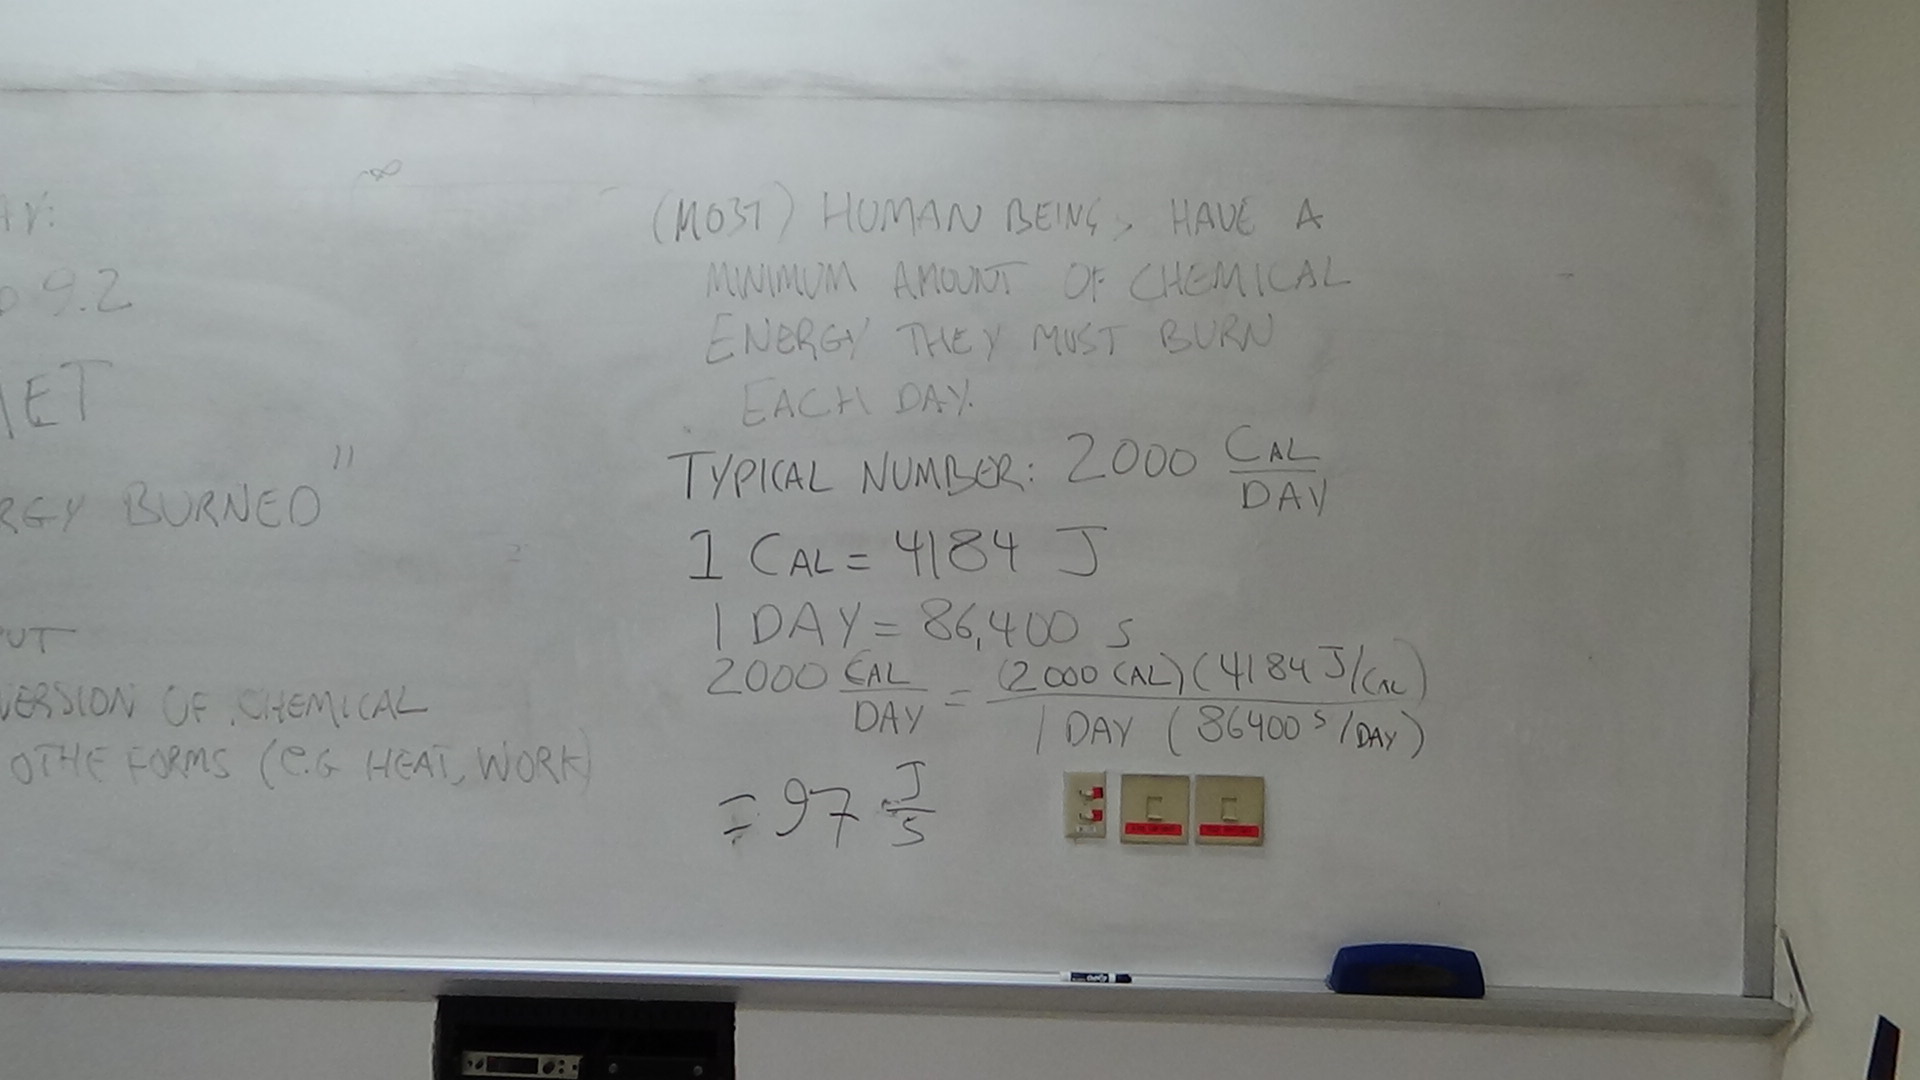 AY:
9.2
ET
RGY BURNED"
PUT
VERSION OF CHEMICAL
OTHE FORMS (e.G HEAT, WORK)
(MOST) HUMAN BEINGS HAVE A
MINIMUM AMOUNT OF CHEMICAL
ENERGY THEY MUST BURN
EACH DAY.
TYPICAL NUMBER: 2000 CAL/DAY
1 CAL = 4184 J
1 DAY = 86,400 s
2000 CAL/DAY = (2000 CAL)(4184 J/CAL) / 1 DAY (86400 s/DAY)
= 97 J/s
EXPO